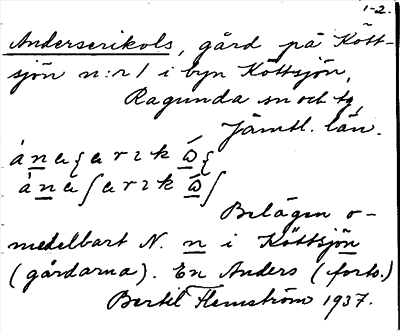 1-2.
Anderserikols, gård på Kött-
sjön n:r 1 i byn Köttsjön,
Ragunda sn och tg
Jämtl. län.
Belägen o-
medelbart N. n i Köttsjön
(gårdarna). En Anders (forts.)
Bertil Flemström 1937.